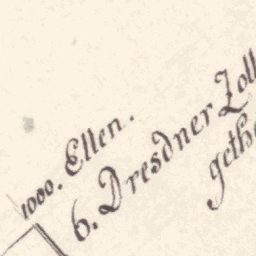 1000. Ellen.
6. Dresdner Zoll
geth